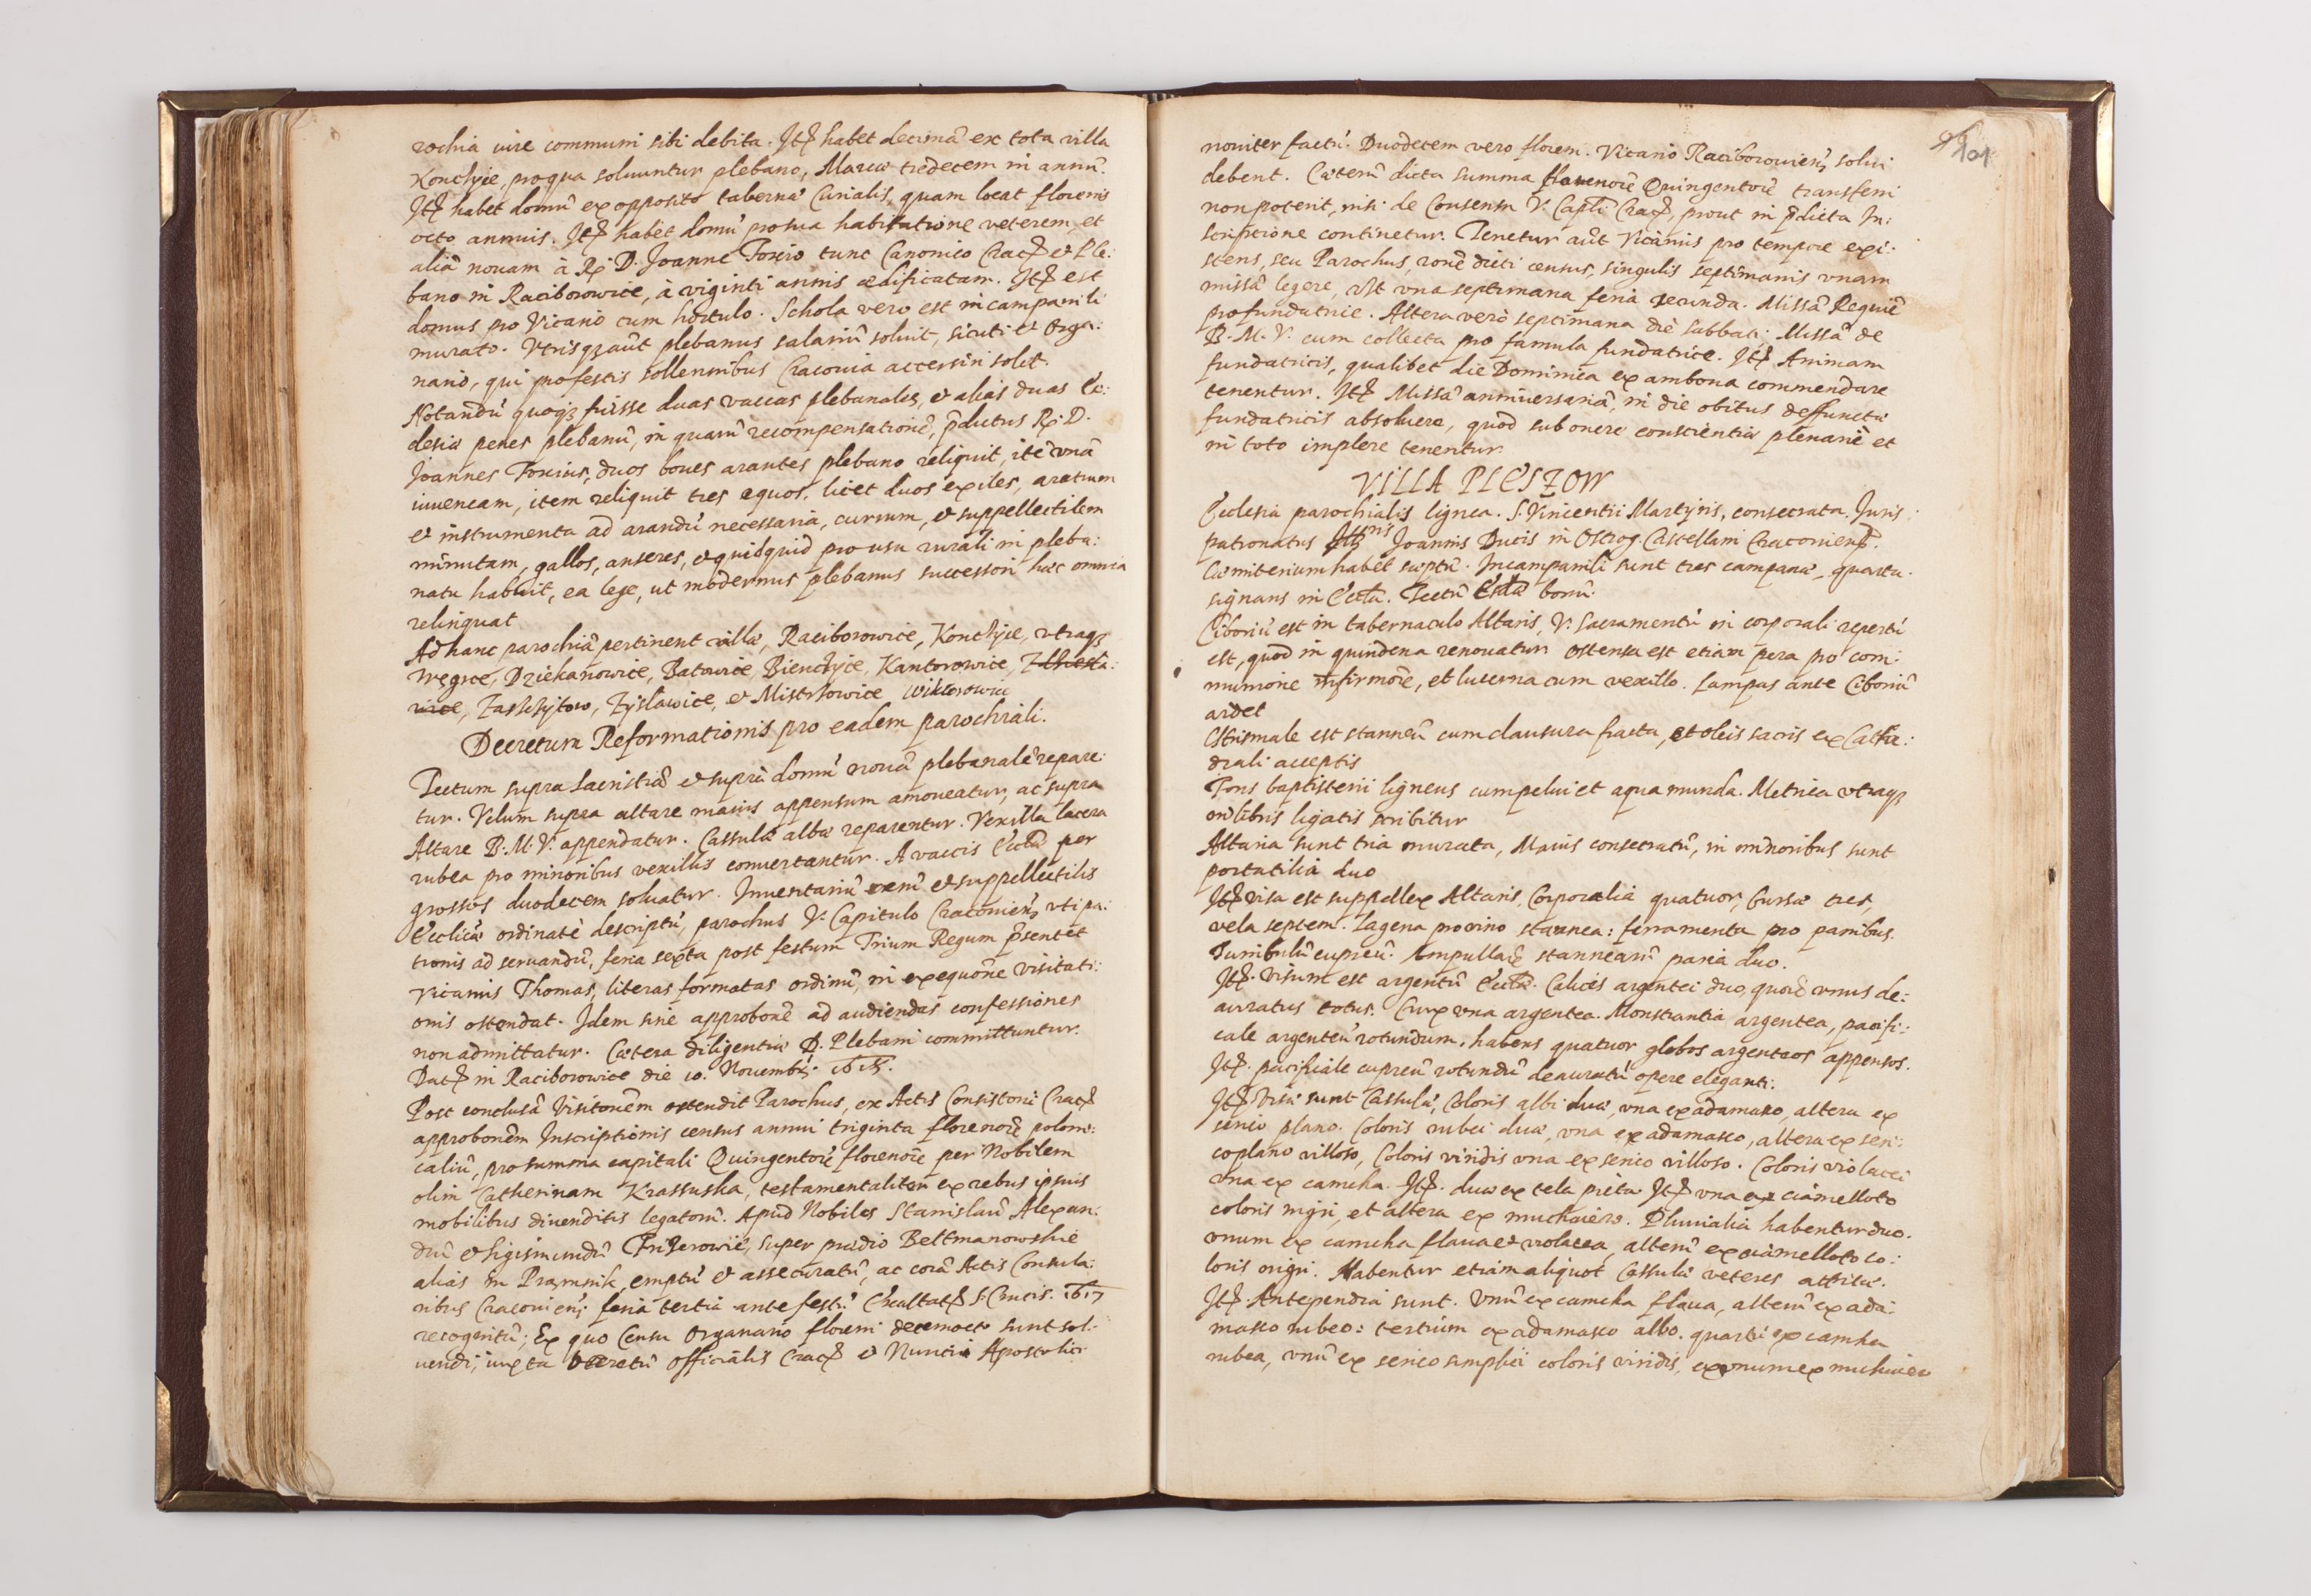 rochia iure communi sibi debita. Itē habet decimā ex tota villa
Konczyce, pro qua soluuntur plebano, Marcæ tredecem in annū.
Itē habet domū ex opposito tabernæ Curialis, quam locat florenis
octo annuis. Itē habet domū pro sua habitatione veterem, et
aliā nouam à R. D. Joanne Foxio tunc Canonico Crac. & Ple:
bano in Raciborowice, à viginti annis ædificatam. Itē est
domus pro Vicario cum hortulo. Schola vero est in campanili
murato. Vtrisq; aūt plebanus salariū soluit, sicuti & Orga:
nario, qui pro festis sollennibus Cracouia accersiri solet.
Notandū quoq; fuisse duas vaccas plebanales, & alias duas Ec:
clesiæ penes plebanū, in quarū recompensationē, p̄dictus R. D.
Joannes Foxius, duos boues arantes plebano reliquit, itē vnā
iuuencam, item reliquit tres equos, licet duos exiles, aratrum
& instrumenta ad arandū necessaria, currum, & suppellectilem
minutam, gallos, anseres, & quidquid pro usu rurali in pleba:
natu habuit, ea lege, ut modernus plebanus successori hæc omnia
relinquat
Ad hanc parochiā pertinent villæ, Raciborowice, Konczyce, vtraq;
Węgrce, Dziekanowice, Batowice, Bienczyce, Kantorowice,
Zastczytow, Zysławice, & Mistrzowice Wiktorowice
Decretum Reformationis pro eadem parochiali.
Tectum supra Sacristiā & supra domū nouā plebanalē repare:
tur. Velum supra altare maius appensum amoueatur, ac supra
Altare B. M. V. appendatur. Cassulæ albæ reparentur. Vexilla lacera
rubea pro minoribus vexillis conuertantur. A vaccis Eccliæ per
grossos duodecem soluatur. Inuentariū rerū & suppellectilis
Eccliæ ordinatè descriptū, parochus V. Capitulo Cracouien. vti pa:
tronis ad seruandū, feria sexta post festum Trium Regum p̄sentet
Vicarius Thomas, literas formatas ordinū, in exequōne visitati:
onis ostendat. Idem sine approbōne ad audiendas confessiones
non admittatur. Cætera diligentiæ D. Plebani committuntur.
Dat. in Raciborowice die 10. Nouembris.
Post conclusā Visitōnem ostendit Parochus, ex Actis Consistorii Crac.
approbonēm Inscriptionis census annui triginta florenorū poloni:
caliū, pro summa capitali Quingentorū florenorū per Nobilem
olim Catherinam Krassuska, testamentaliter ex rebus ipsius
mobilibus diuenditis legatorū. Apud Nobiles Stanislaū Alexan:
drū & Sigismundū, super prædio Beltmanowskie
alias in Prąmnik, emptū & assecuratū, ac corā Actis Consula:
ribus Cracouien. feria tertia ante festū Exaltat. S. Crucis. 1617
recognitū; Ex quo Censu Organario floreni decemocto sunt sol:
uendi, iuxta Decretū Officialis Crac. & Nuncii Apostolici
101
nouiter factū. Duodecem vero floren. Vicario Raciborouien. solui
debent. Cæterū dicta summa florenorū Quingentorū transferri
non poterit, nisi de Consensu V. Capli Crac., prout in p̄dicta In:
scriptione continetur. Tenetur aūt Vicarius pro tempore exi:
stens, seu Parochus, ronē dicti census, singulis septimanis vnam
missā legere, vt vna septimana feria secunda. Missā Requiē
pro fundatrice. Altera verò septimana die Sabbati: Missā de
B. M. V. cum collecta pro famula fundatrice. Itē Animam
fundatricis, qualibet die Dominica ex ambona commendare
tenentur. Itē Missā anniuersariā, in die obitus deffunctæ
fundatricis absoluere, quod sub onere conscientiæ plenariè et
in toto implere tenentur.
VILLA PLESZOW
Ecclesia parochialis lignea. S. Vincentii Martyris, consecrata. Juris
patronatus Joannis Ducis in Ostrog. Castellani Cracouien.
Cæmiterium habet septū. In campanili sunt tres campanæ, quarta
signans in Eccla. Tectū Ecclæ bonū.
Ciboriū est in tabernaculo Altaris, V. Sacramentū in corporali repertū
est, quod in quindena renouatur. Ostensa est etiam pera pro com:
munione infirmorū, et lucerna cum vexillo. Lampas ante Ciboriū
ardet
Chrismale est stanneū cum clausura fracta, et oleis sacris ex Cathe:
drali acceptis
Fons baptisterii ligneus cum pelui et aqua munda. Metrica vtraq;
in libris ligatis scribitur
Altaria sunt tria murata, Maius consecratū, in minoribus sunt
portatilia duo
Itē visa est suppellex Altaris, Corporalia quatuor, bursæ tres,
vela septem. Lagena pro vino stannea: ferramenta pro panibus.
Turribulū cupreū. Ampullarū stannearū paria duo.
Itē. Visum est argentū Ecclæ. Calices argentei duo, quorū vnus de:
auratus totus. Crux vna argentea. Monstrantia argentea, pacifi:
cale argenteū rotundum, habens quatuor globos argenteos appensos.
Itē. pacificale cupreū rotundū deauratū opere eleganti.
Itē Visæ sunt Cassulæ, Coloris albi duæ, vna ex adamasco, altera ex
serico plano. Coloris rubei duæ, vna ex adamasco, altera ex seri:
co plano villoso, Coloris viridis vna ex serico villoso. Coloris violacei
vna ex camcha. Itē. duæ ex tela picta Itē vna ex ciamelloto
coloris nigri, et altera ex muchaiero. Pluuialia habentur duo.
vnum ex camcha flaua et violacea, alterū ex ciamelloto co:
loris nigri. Habentur etiam aliquot Cassulæ veteres attritæ.
Itē. Antependia sunt. Vnū ex camcha flaua, alterū ex ada:
masco rubeo: tertium ex adamasco albo. quartū ex camha
rubea, vnū ex serico simplici coloris viridis, et vnum ex muchaiero